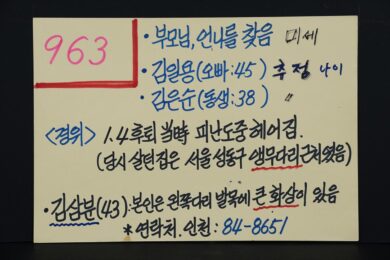 963
• 부모님, 언니를 찾음 미세
• 김일용(오빠:45) 추정 나이
• 김은순(동생:38) 〃
<경위> 1.4후퇴 当時 피난도중 헤어짐.
(당시 살던집은 서울 성동구 앵무다리근처였음)
• 김삼분(43):본인은 왼쪽다리 발목에 큰 화상이 있음
* 연락처. 인천: 84-8651